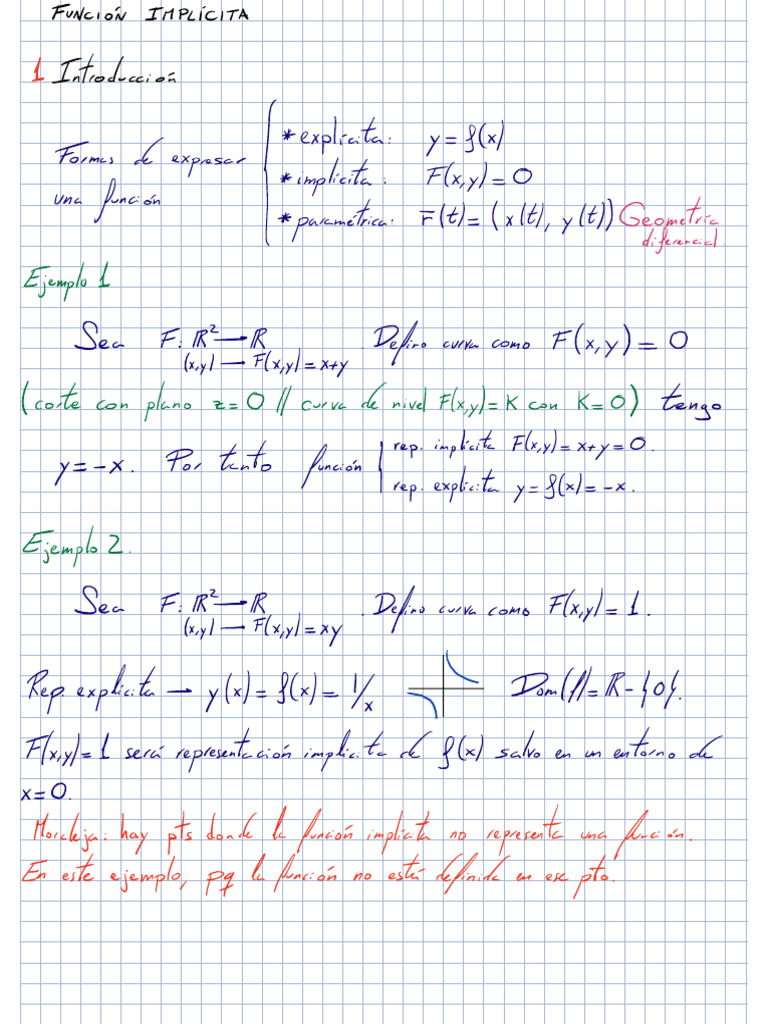 FUNCIÓN IMPLÍCITA
1 Introducción
Formas de expresar una función
* explícita: y = f(x)
* implícita: F(x,y) = 0
* paramétrica: r̄(t) = (x(t), y(t)) Geometría diferencial
Ejemplo 1
Sea F: ℝ² → ℝ Defino curva como F(x,y) = 0
(x,y) → F(x,y) = x+y
(corte con plano z=0 // curva de nivel F(x,y)=K con K=0) tengo
y = -x. Por tanto función
rep. implícita F(x,y) = x+y = 0.
rep. explícita y = f(x) = -x.
Ejemplo 2.
Sea F: ℝ² → ℝ . Defino curva como F(x,y) = 1.
(x,y) → F(x,y) = xy
Rep. explícita → y(x) = f(x) = 1/x Dom(f) = ℝ - {0}.
F(x,y) = 1 será representación implícita de f(x) salvo en un entorno de
x = 0.
Moraleja: hay pts donde la función implícita no representa una función.
En este ejemplo, pq la función no está definida en ese pto.